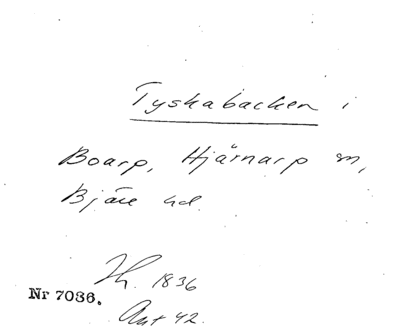 Tyskabacken i
Boarp, Hjärnarp sn,
Bjäre hd.
Th. 1836
Nr 7036.
Ant 42.